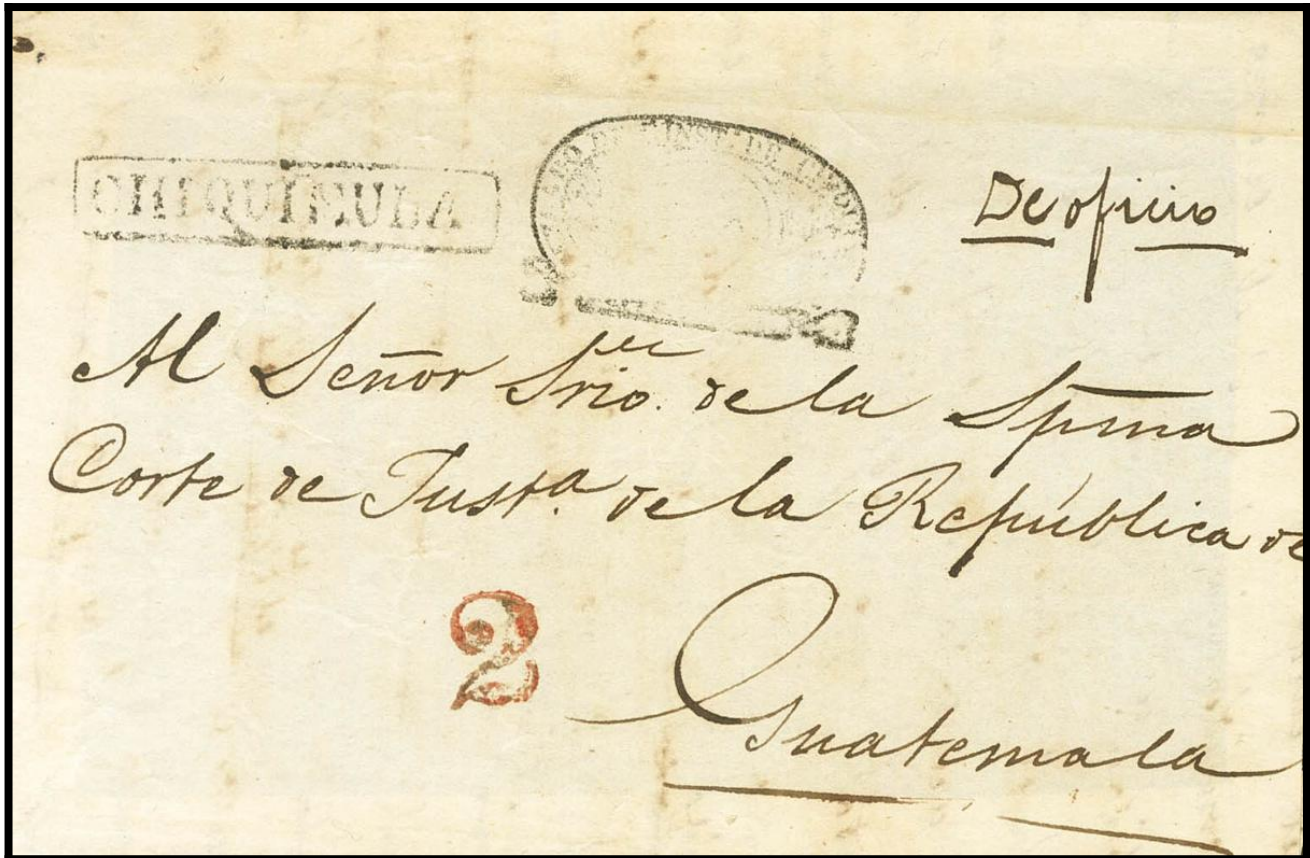 CHIQUIMULA
De oficio
Al Señor Srio. de la Spma
Corte de Justa. de la República de
2
Guatemala